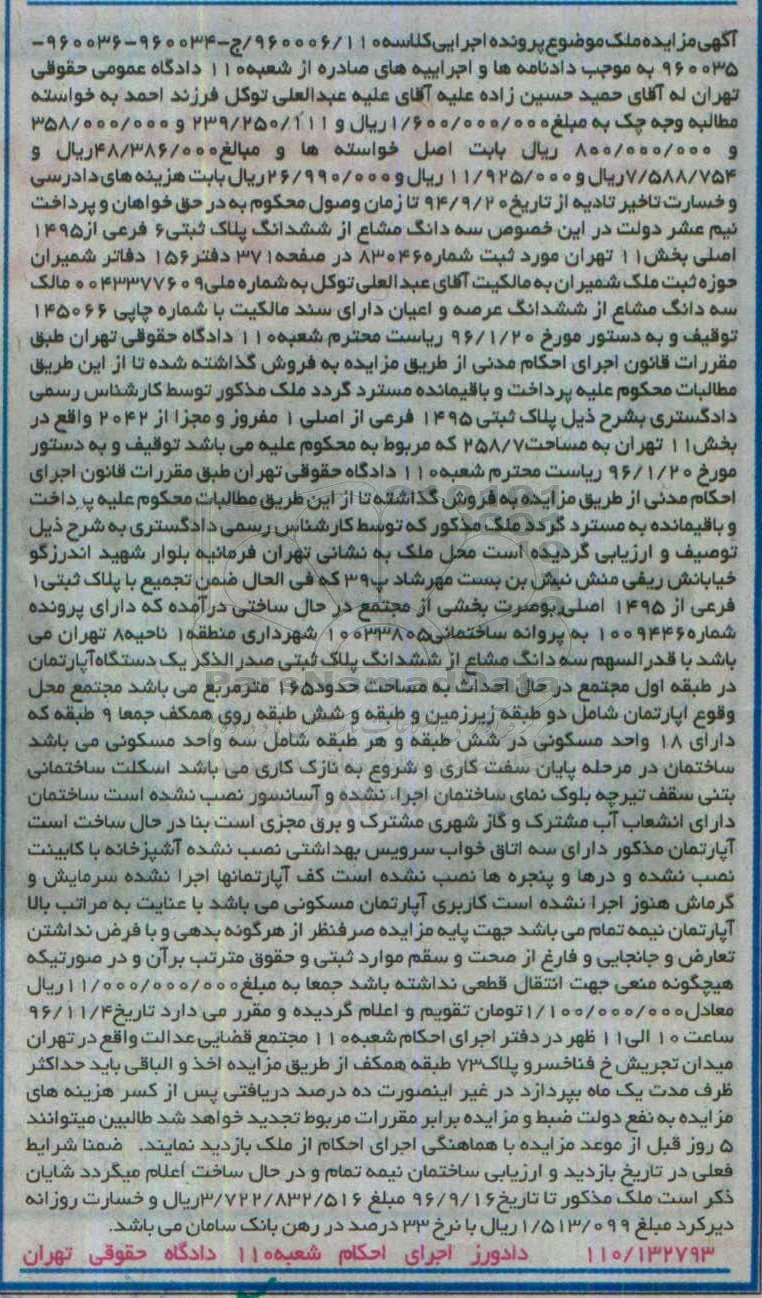 آگهی مزایده ملک موضوع پرونده اجرایی کلاسه ۹۶۰۰۰۶/۱۱۰/ج-۹۶۰۰۳۴-۹۶۰۰۳۶-
۹۶۰۰۳۵ به موجب دادنامه ها و اجراییه های صادره از شعبه۱۱۰ دادگاه عمومی حقوقی
تهران له آقای حمید حسین زاده علیه آقای علیه عبدالعلی توکل فرزند احمد به خواسته
مطالبه وجه چک به مبلغ۱/۶۰۰/۰۰۰/۰۰۰ ریال و ۲۳۹/۲۵۰/۱۱۱ و ۳۵۸/۰۰۰/۰۰۰
و ۸۰۰/۰۰۰/۰۰۰ ریال بابت اصل خواسته ها و مبالغ۴۸/۳۸۶/۰۰۰ریال و
۷/۵۸۸/۷۵۴ریال و ۱۱/۹۲۵/۰۰۰ ریال و ۲۶/۹۹۰/۰۰۰ریال بابت هزینه های دادرسی
و خسارت تاخیر تادیه از تاریخ۹۴/۹/۲۰ تا زمان وصول محکوم به در حق خواهان و پرداخت
نیم عشر دولت در این خصوص سه دانگ مشاع از ششدانگ پلاک ثبتی۶ فرعی از۱۴۹۵
اصلی بخش۱۱ تهران مورد ثبت شماره۸۳۰۴۶ در صفحه۳۷۱ دفتر۱۵۶ دفاتر شمیران
حوزه ثبت ملک شمیران به مالکیت آقای عبدالعلی توکل به شماره ملی۰۰۴۳۳۷۷۶۰۹ مالک
سه دانگ مشاع از ششدانگ عرصه و اعیان دارای سند مالکیت با شماره چاپی ۱۴۵۰۶۶
توقیف و به دستور مورخ ۹۶/۱/۲۰ ریاست محترم شعبه۱۱۰ دادگاه حقوقی تهران طبق
مقررات قانون اجرای احکام مدنی از طریق مزایده به فروش گذاشته شده تا از این طریق
مطالبات محکوم علیه پرداخت و باقیمانده مسترد گردد ملک مذکور توسط کارشناس رسمی
دادگستری بشرح ذیل پلاک ثبتی ۱۴۹۵ فرعی از اصلی ۱ مفروز و مجزا از ۲۰۴۲ واقع در
بخش۱۱ تهران به مساحت۲۵۸/۷ که مربوط به محکوم علیه می باشد توقیف و به دستور
مورخ ۹۶/۱/۲۰ ریاست محترم شعبه۱۱۰ دادگاه حقوقی تهران طبق مقررات قانون اجرای
احکام مدنی از طریق مزایده به فروش گذاشته تا از این طریق مطالبات محکوم علیه پرداخت
و باقیمانده به مسترد گردد ملک مذکور که توسط کارشناس رسمی دادگستری به شرح ذیل
توصیف و ارزیابی گردیده است محل ملک به نشانی تهران فرمانیه بلوار شهید اندرزگو
خیابانش ریفی منش نبش بن بست مهرشاد پ۳۹ که فی الحال ضمن تجمیع با پلاک ثبتی۱
فرعی از ۱۴۹۵ اصلی بوصرت بخشی از مجتمع در حال ساختی درآمده که دارای پرونده
شماره۱۰۰۹۴۴۶ به پروانه ساختمانی۱۰۰۳۳۸۰۵ شهرداری منطقه۱ ناحیه۸ تهران می
باشد با قدرالسهم سه دانگ مشاع از ششدانگ پلاک ثبتی صدرالذکر یک دستگاه آپارتمان
در طبقه اول مجتمع در حال احداث به مساحت حدود۱۶۵ مترمربع می باشد مجتمع محل
وقوع اپارتمان شامل دو طبقه زیرزمین و طبقه و شش طبقه روی همکف جمعا ۹ طبقه که
دارای ۱۸ واحد مسکونی در شش طبقه و هر طبقه شامل سه واحد مسکونی می باشد
ساختمان در مرحله پایان سفت کاری و شروع به نازک کاری می باشد اسکلت ساختمانی
بتنی سقف تیرچه بلوک نمای ساختمان اجراء نشده و آسانسور نصب نشده است ساختمان
دارای انشعاب آب مشترک و گاز شهری مشترک و برق مجزی است بنا در حال ساخت است
آپارتمان مذکور دارای سه اتاق خواب سرویس بهداشتی نصب نشده آشپزخانه با کابینت
نصب نشده و درها و پنجره ها نصب نشده است کف آپارتمانها اجرا نشده سرمایش و
گرماش هنوز اجرا نشده است کاربری آپارتمان مسکونی می باشد با عنایت به مراتب بالا
آپارتمان نیمه تمام می باشد جهت پایه مزایده صرفنظر از هرگونه بدهی و با فرض نداشتن
تعارض و جانجایی و فارغ از صحت و سقم موارد ثبتی و حقوق مترتب برآن و در صورتیکه
هیچگونه منعی جهت انتقال قطعی نداشته باشد جمعا به مبلغ۱۱/۰۰۰/۰۰۰/۰۰۰ریال
معادل۱/۱۰۰/۰۰۰/۰۰۰تومان تقویم و اعلام گردیده و مقرر می دارد تاریخ۹۶/۱۱/۴
ساعت ۱۰ الی۱۱ ظهر در دفتر اجرای احکام شعبه۱۱۰ مجتمع قضایی عدالت واقع در تهران
میدان تجریش خ فناخسرو پلاک۷۳ طبقه همکف از طریق مزایده اخذ و الباقی باید حداکثر
ظرف مدت یک ماه بپردازد در غیر اینصورت ده درصد دریافتی پس از کسر هزینه های
مزایده به نفع دولت ضبط و مزایده برابر مقررات مربوط تجدید خواهد شد طالبین میتوانند
۵ روز قبل از موعد مزایده با هماهنگی اجرای احکام از ملک بازدید نمایند. ضمنا شرایط
فعلی در تاریخ بازدید و ارزیابی ساختمان نیمه تمام و در حال ساخت اعلام میگردد شایان
ذکر است ملک مذکور تا تاریخ۹۶/۹/۱۶ مبلغ ۳/۷۲۲/۸۳۲/۵۱۶ریال و خسارت روزانه
دیرکرد مبلغ ۱/۵۱۳/۰۹۹ریال با نرخ ۳۳ درصد در رهن بانک سامان می باشد.
۱۱۰/۱۳۲۷۹۳ دادورز اجرای احکام شعبه۱۱۰ دادگاه حقوقی تهران